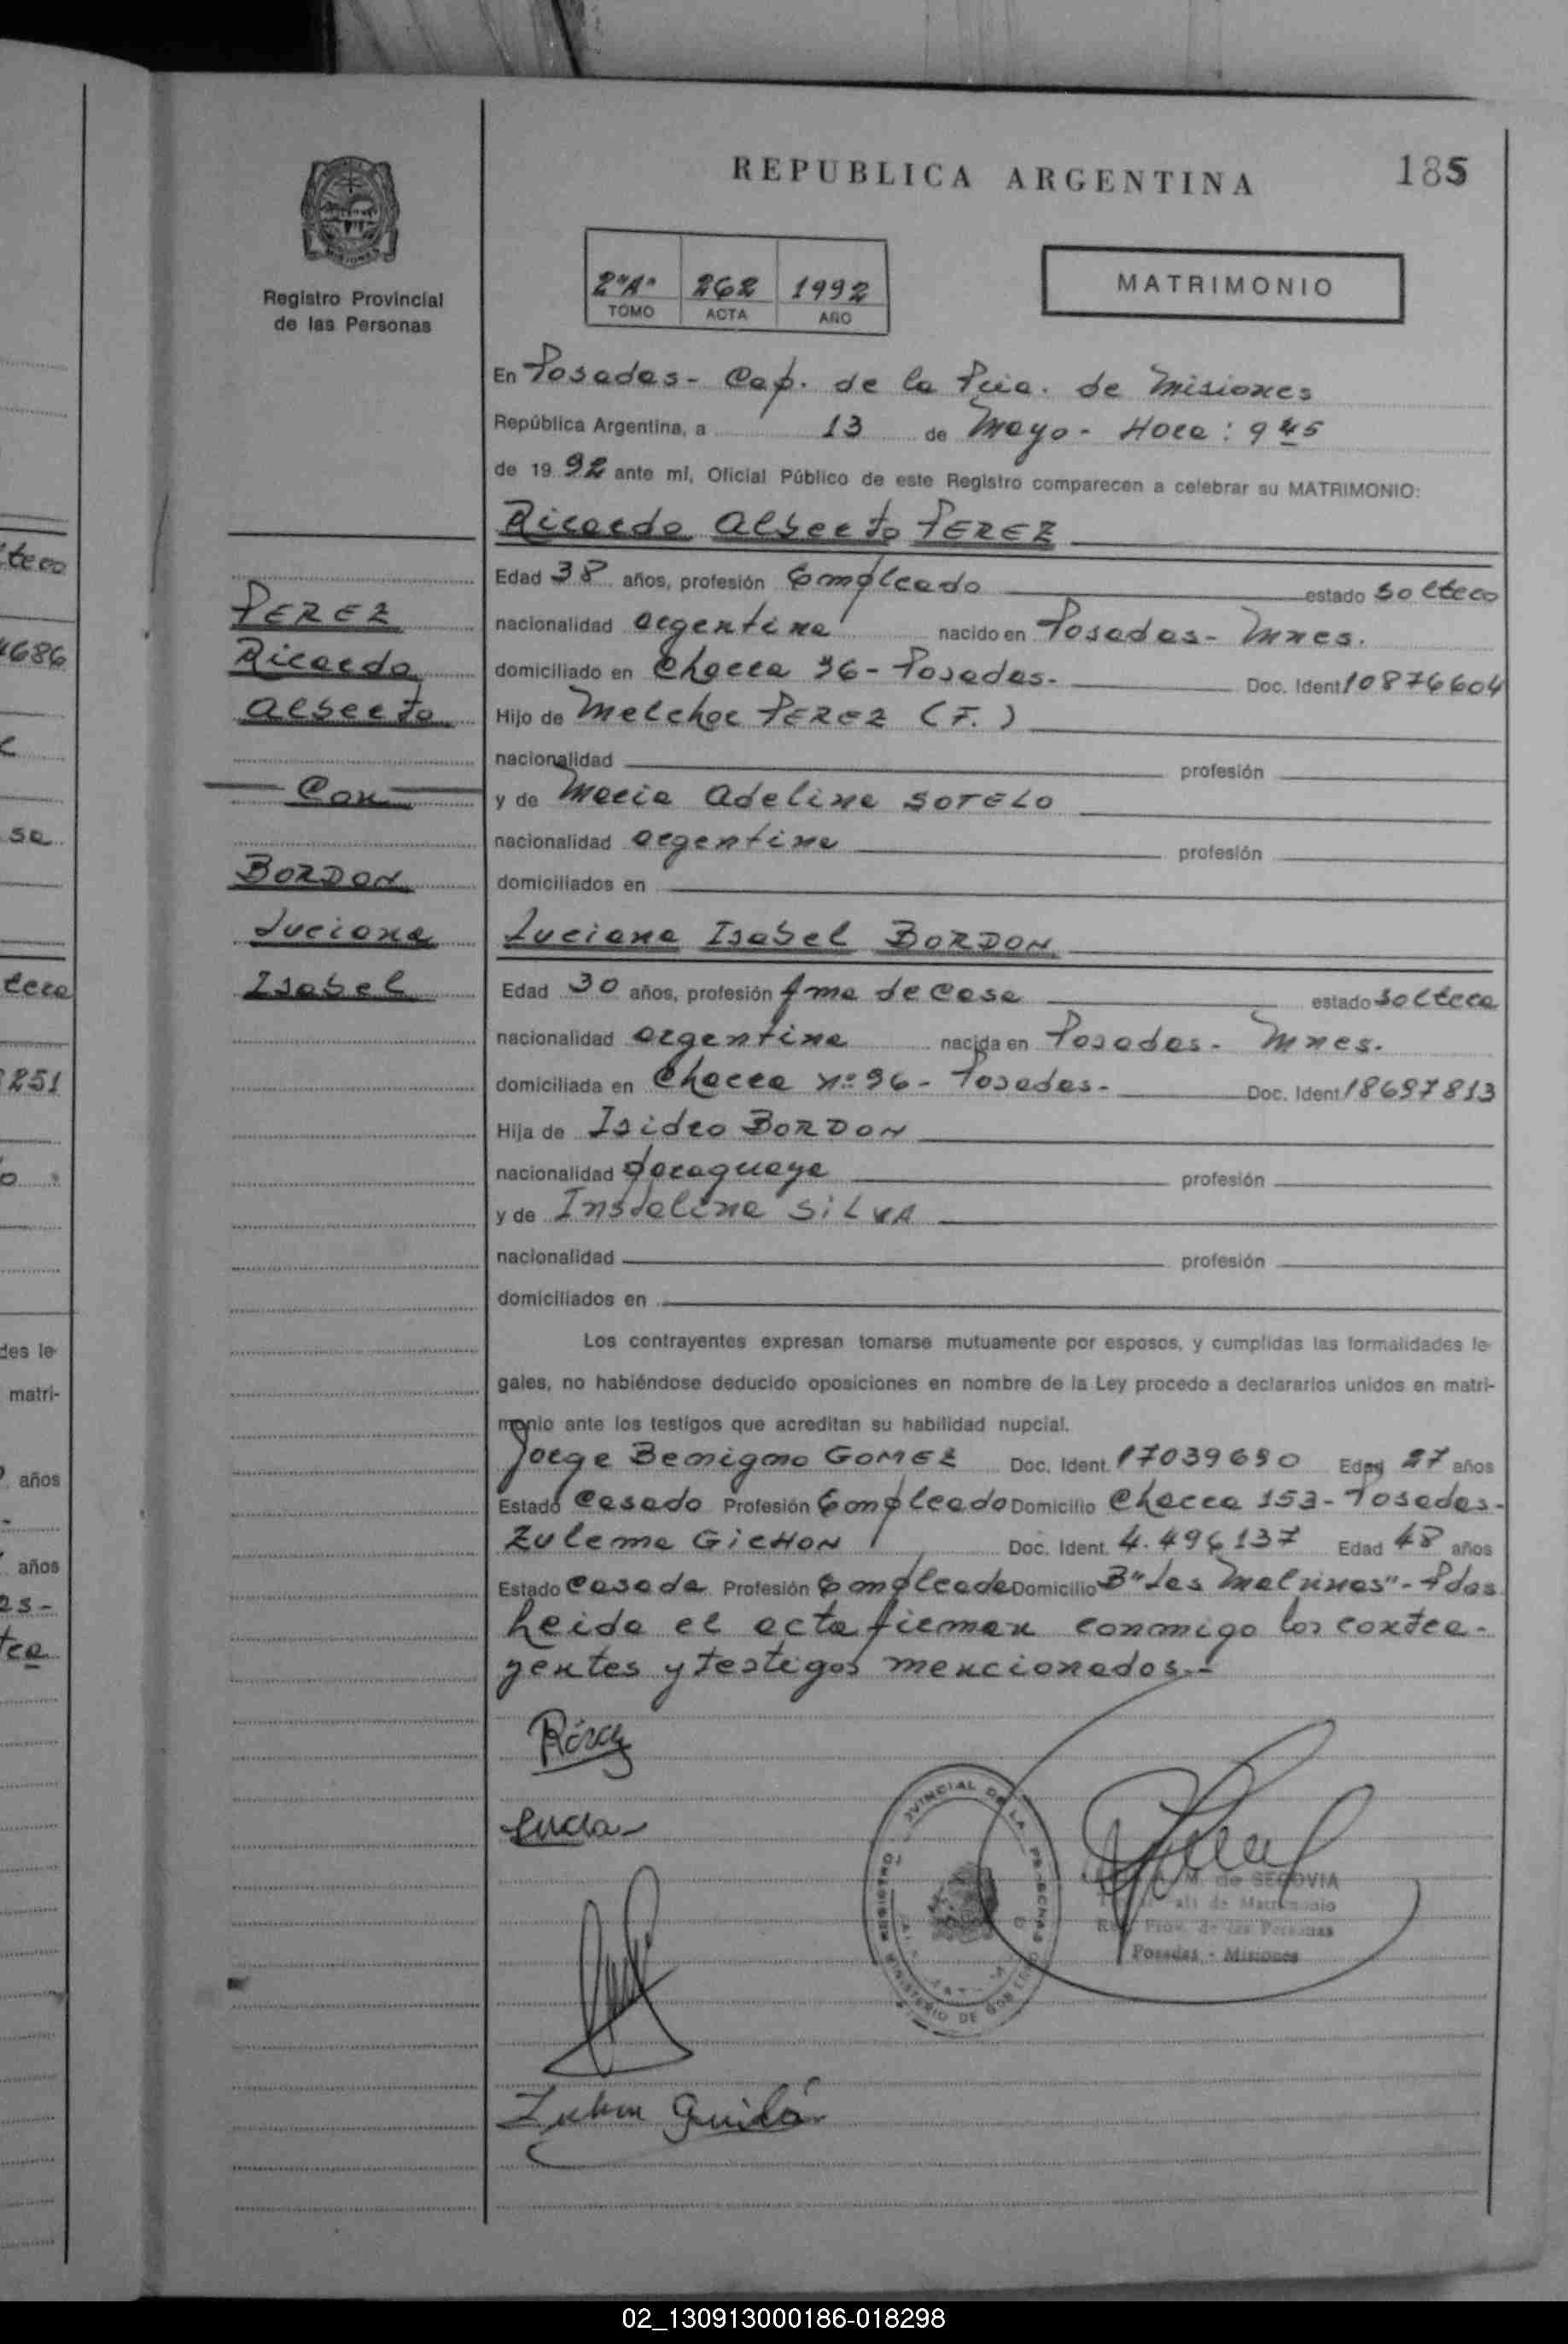 REPUBLICA ARGENTINA
185
Registro Provincial
de las Personas
2"A" 262 1992
TOMO ACTA AÑO
MATRIMONIO
En Posadas - Cap. de la Pcia. de Misiones
República Argentina, a 13 de Mayo - Hora: 9 45
de 19 92 ante mí, Oficial Público de este Registro comparecen a celebrar su MATRIMONIO:
Ricardo Alberto PEREZ
Edad 38 años, profesión Empleado estado soltero
nacionalidad argentina nacido en Posadas - Mnes.
domiciliado en Chacra 96 - Posadas. Doc. Ident 10876604
Hijo de Melchor PEREZ (F.)
nacionalidad profesión
y de Maria Adelina SOTELO
nacionalidad argentina profesión
domiciliados en
PEREZ
Ricardo
Alberto
Con
BORDON
Luciana
Isabel
Luciana Isabel BORDON
Edad 30 años, profesión Ama de Casa estado soltera
nacionalidad argentina nacida en Posadas - Mnes.
domiciliada en Chacra Nº 96 - Posadas - Doc. Ident 18697813
Hija de Isidro BORDON
nacionalidad paraguaya profesión
y de SILVA
nacionalidad profesión
domiciliados en
Los contrayentes expresan tomarse mutuamente por esposos, y cumplidas las formalidades le-
gales, no habiéndose deducido oposiciones en nombre de la Ley procedo a declararlos unidos en matri-
monio ante los testigos que acreditan su habilidad nupcial.
Jorge Benigno GOMEZ Doc. Ident. 17039690 Edad 27 años
Estado Casado Profesión Empleado Domicilio Chacra 153 - Posadas -
Zulema GICHON Doc. Ident. 4.496137 Edad 48 años
Estado Casada Profesión Empleada Domicilio Bº "Las Malvinas" - Pdas
Leida el acta firman conmigo los contra-
yentes y testigos mencionados. -
M. de SEGOVIA
de Matrimonio
Reg. Prov. de las Personas
Posadas - Misiones
REGISTRO PROVINCIAL DE LAS PERSONAS
MINISTERIO DE GOBIERNO
tero
4686
sa
tera
251
des le-
matri-
años
años
as -
tra
02_130913000186-018298